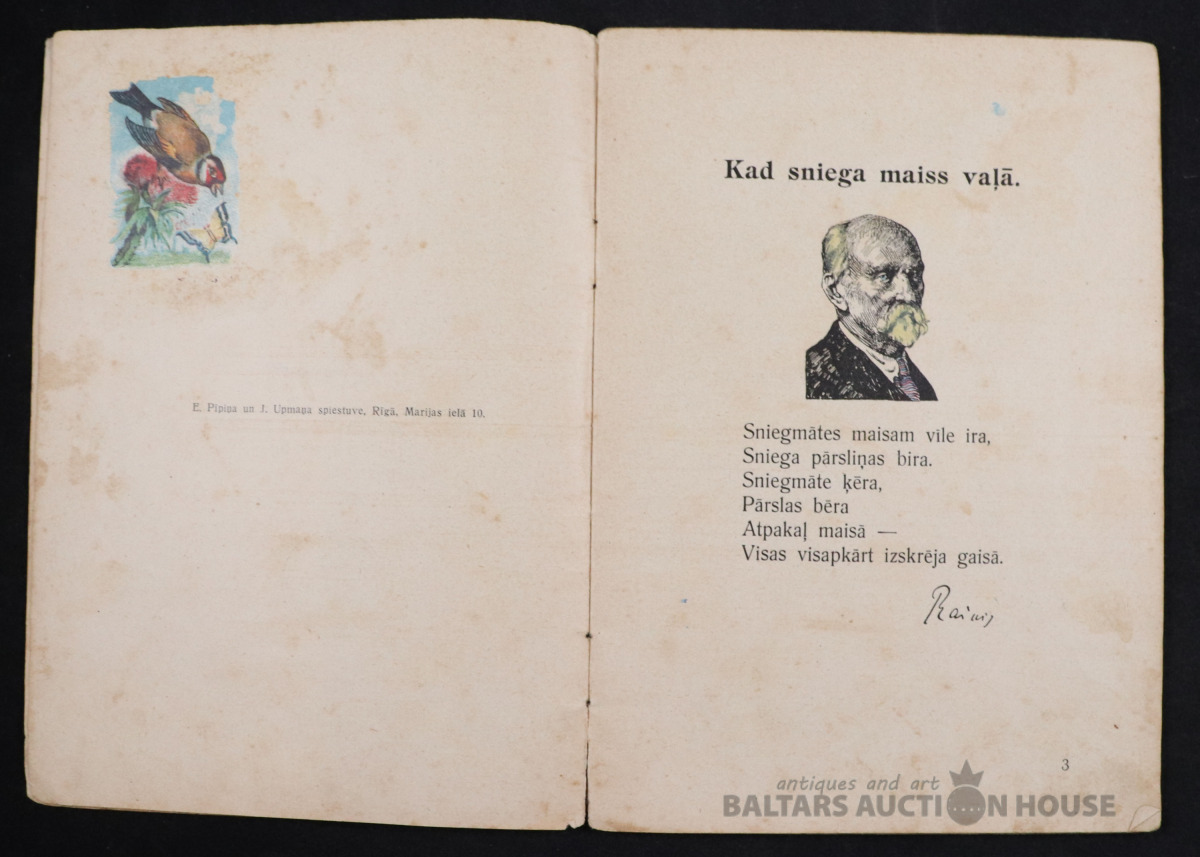 E. Pīpiņa un J. Upmaņa spiestuve, Rīgā, Marijas ielā 10.
Kad sniega maiss vaļā.
Sniegmātes maisam vīle ira,
Sniega pārsliņas bira.
Sniegmāte ķēra,
Pārslas bēra
Atpakaļ maisā —
Visas visapkārt izskrēja gaisā.
Rainis
3
antiques and art
BALTARS AUCTION HOUSE